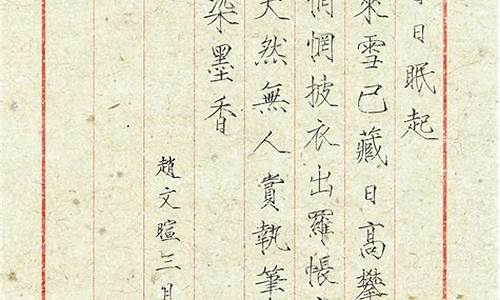 日眠起
來雪已藏日高攀
惘惘披衣出羅帳
天然無人賞執筆
染墨香
趙文暄三月